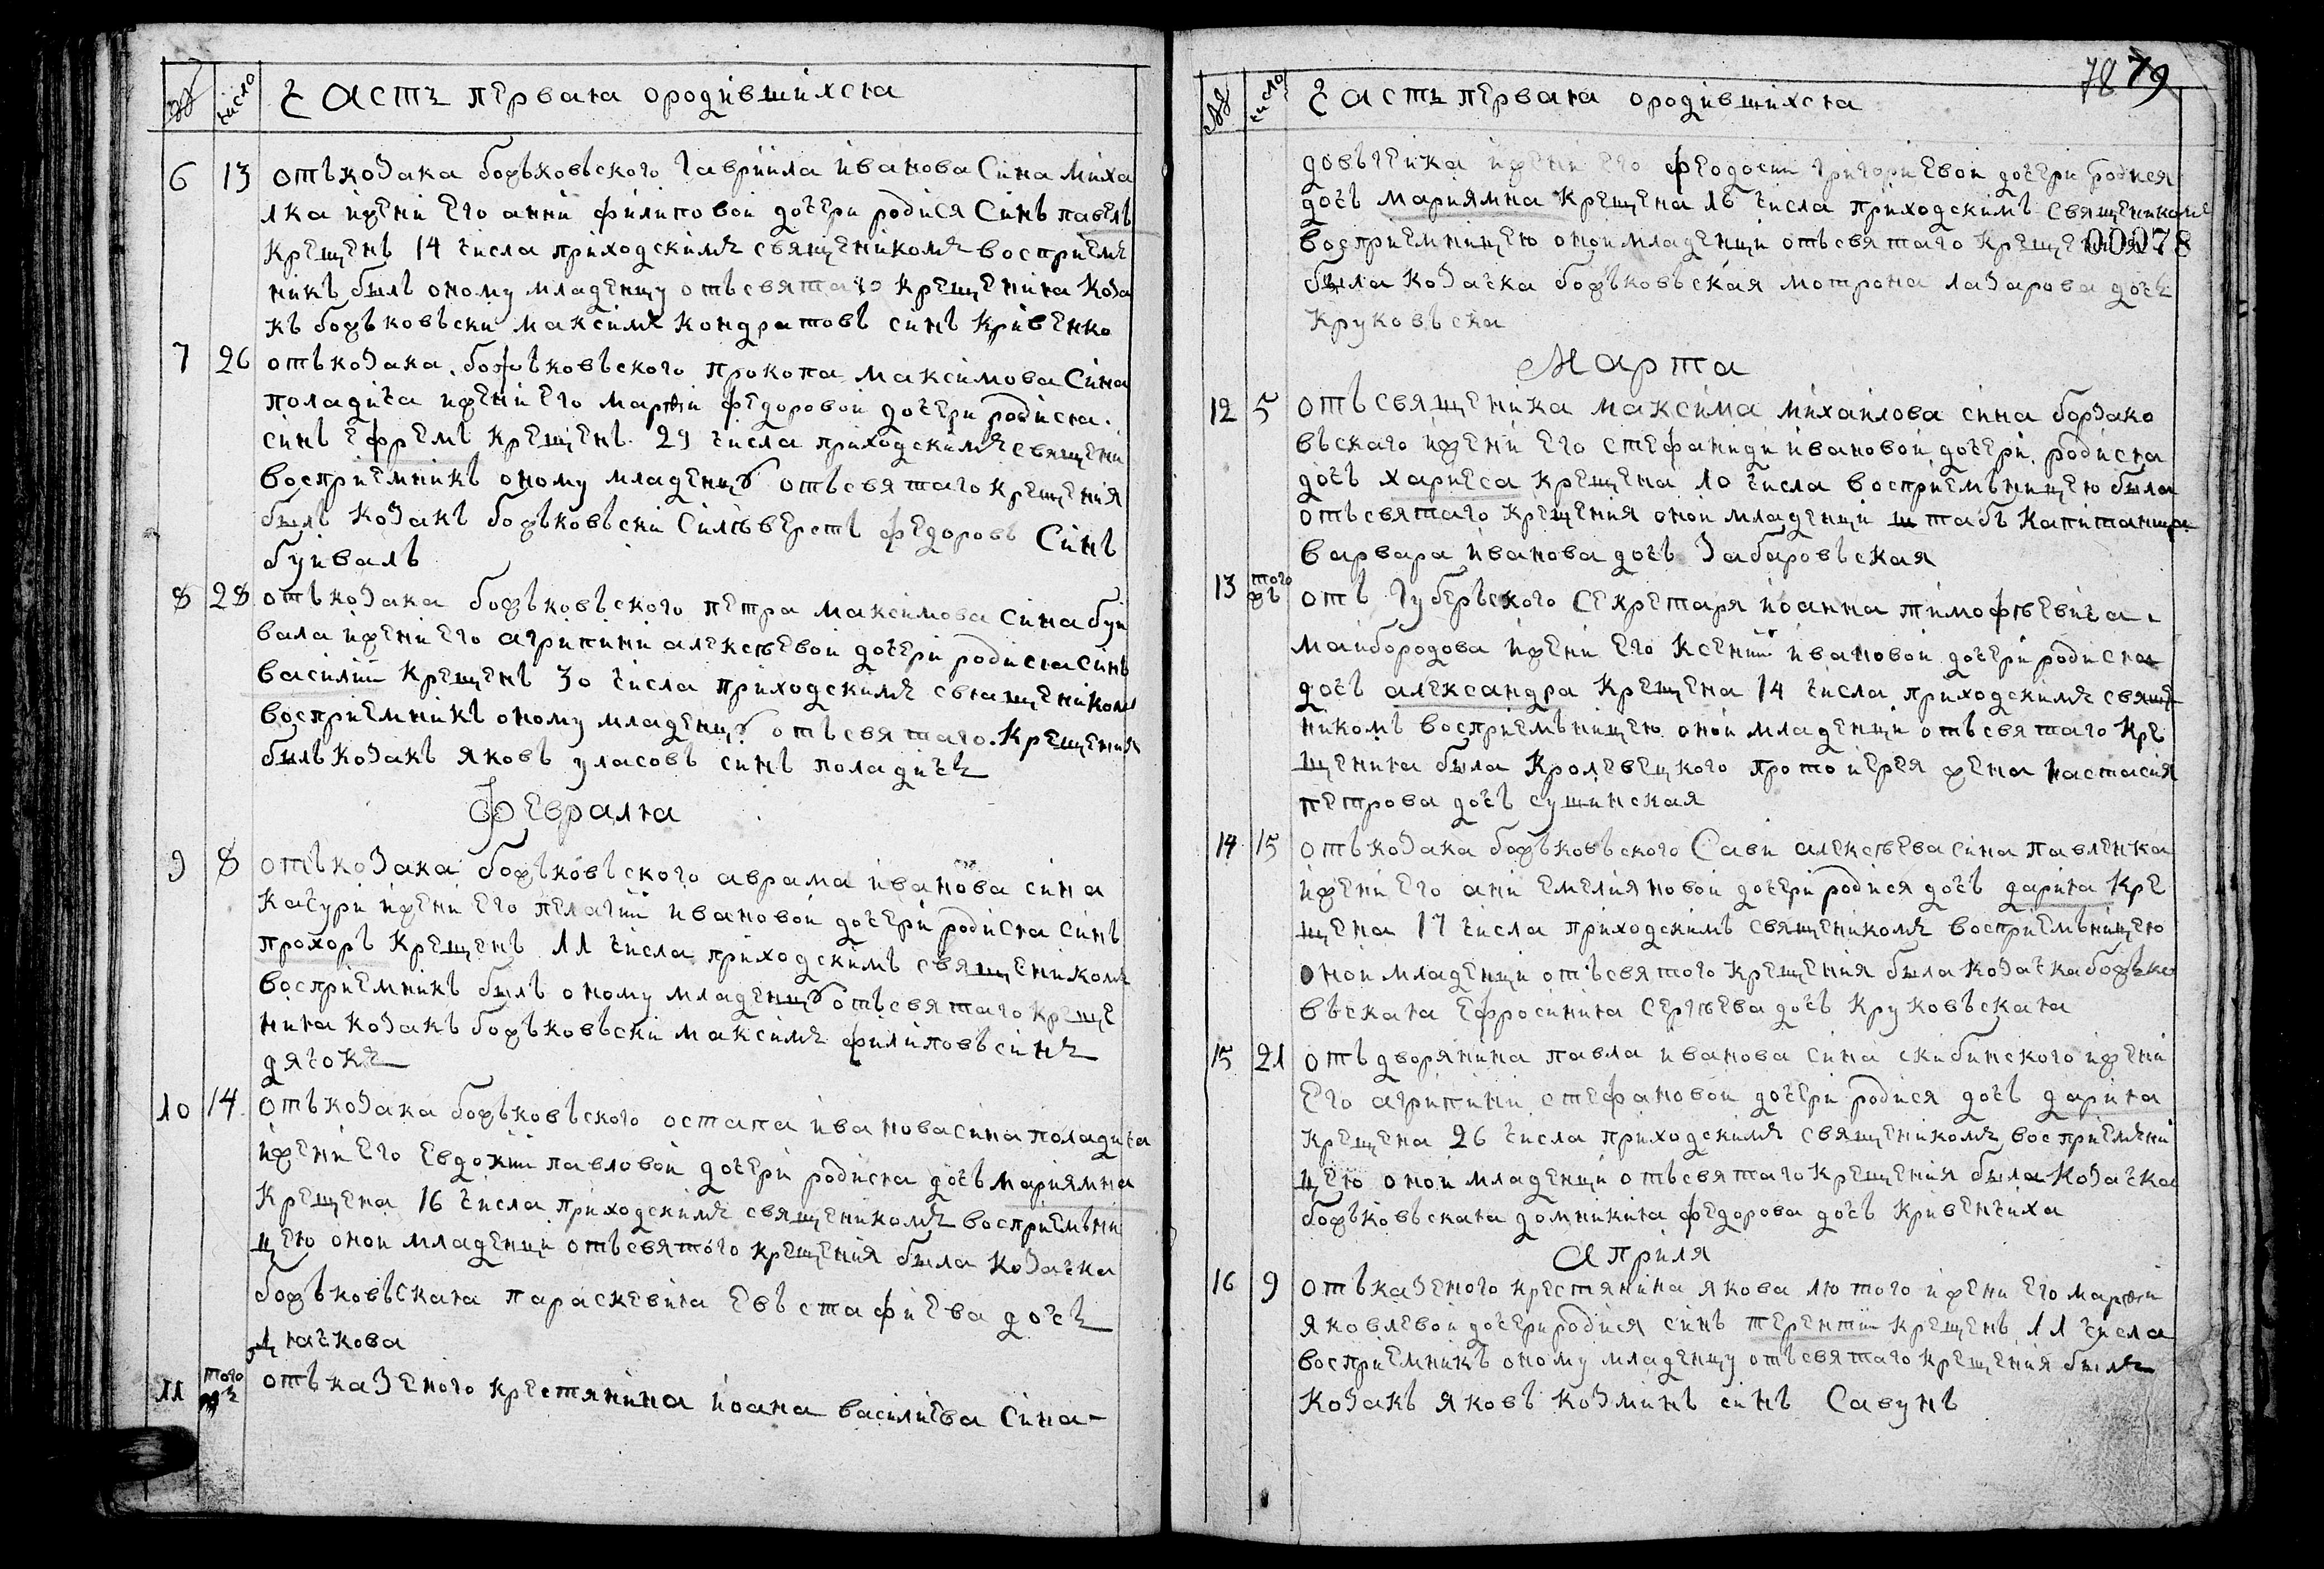 № число Часть первая ородившихся
6 13 отъ козака божъковъского гавриила иванова сина Миха
лка ижени его анни филиповой дочери родися Синъ павелъ
крещенъ 14 числа приходскимъ священикомъ восприем
никъ былъ оному младенцу отъ святаго крещения коза
къ божъковъски максимъ кондратовъ синъ кривенко
7 26 отъ козака божъковъского прокопа максимова Сина
поладича ижени его марфи федоровой дочери родися
синъ ефремъ крещенъ 29 числа приходскимъ священи
восприемникъ оному младенцу отъ святаго крещения
былъ козакъ божъковъски Силъверстъ федоровъ Синъ
буйвалъ
8 28 отъ козака божъковъского петра максимова Сина буй
вала ижени его агрипини алексѣевой дочери родися синъ
василий крещенъ 30 числа приходскимъ священикомъ
восприемникъ оному младенцу отъ святаго крещения
былъ козакъ яковъ уласовъ синъ поладичъ
Февраля
9 8 отъ козака божъковъского аврама иванова сина
качури ижени его пелагий ивановой дочери родися синъ
прохоръ крещенъ 11 числа приходскимъ священикомъ
восприемникъ былъ оному младенцу отъ святаго креще
ния козакъ божъковъски максимъ филиповъ синъ
дячокъ
10 14 отъ козака божъковъского остапа иванова сина поладича
ижени его евдокий павловой дочери родися дочъ мариямна
крещена 16 числа приходскимъ священикомъ восприемъни
цею оной младенци отъ святого крещения была козачка
божъковъская параскевия евъстафиева дочъ
дячкова
11 того жъ отъ казеного крестянина иоана василиева Сина
78 79
№ число Часть первая ородившихся
довъгенка ижени его феодосии григориевой дочери родися
дочъ мариямна крещена 16 числа приходскимъ священикомъ
восприемницею оной младенци отъ святаго крещения
00078
была козачка божъковъская мотрона лазарова дочъ
круковъска
Марта
12 5 отъ священика максима михаилова сина борзако
въскаго ижени его стефаниди ивановой дочери родися
дочъ хариеса крещена 10 числа восприемъницею была
отъ святаго крещения оной младенци штабъ капитанша
варвара иванова дочъ забаровъская
13 того жъ отъ губеръского секретаря иоанна тимофѣевича
майбородова ижени его ксений ивановой дочери родися
дочъ александра крещена 14 числа приходскимъ свяще
никомъ восприемъницею оной младенци отъ святаго кре
щения была кролевецкого протоиерея жена настасия
петрова дочъ сушинская
14 15 отъ козака божъковъского Сави алексѣева сина павленка
ижени его ани емелияновой дочери родися дочъ дария кре
щена 17 числа приходскимъ священикомъ восприемъницею
оной младенци отъ святого крещения была козачка божъко
въская ефросиния сергѣева дочъ круковъская
15 21 отъ дворянина павла иванова сина скибинского ижени
его агрипини стефановой дочери родися дочъ дария
крещена 26 числа приходскимъ священикомъ восприемъни
цею оной младенци отъ святаго крещения была козачка
божъковъская домникия федорова дочъ кривенчиха
Априля
16 9 отъ казеного крестянина якова лютого ижени его марфи
яковлевой дочери родися синъ терентий крещенъ 11 числа
восприемникъ оному младенцу отъ святаго крещения былъ
козакъ яковъ козминъ синъ Савунъ